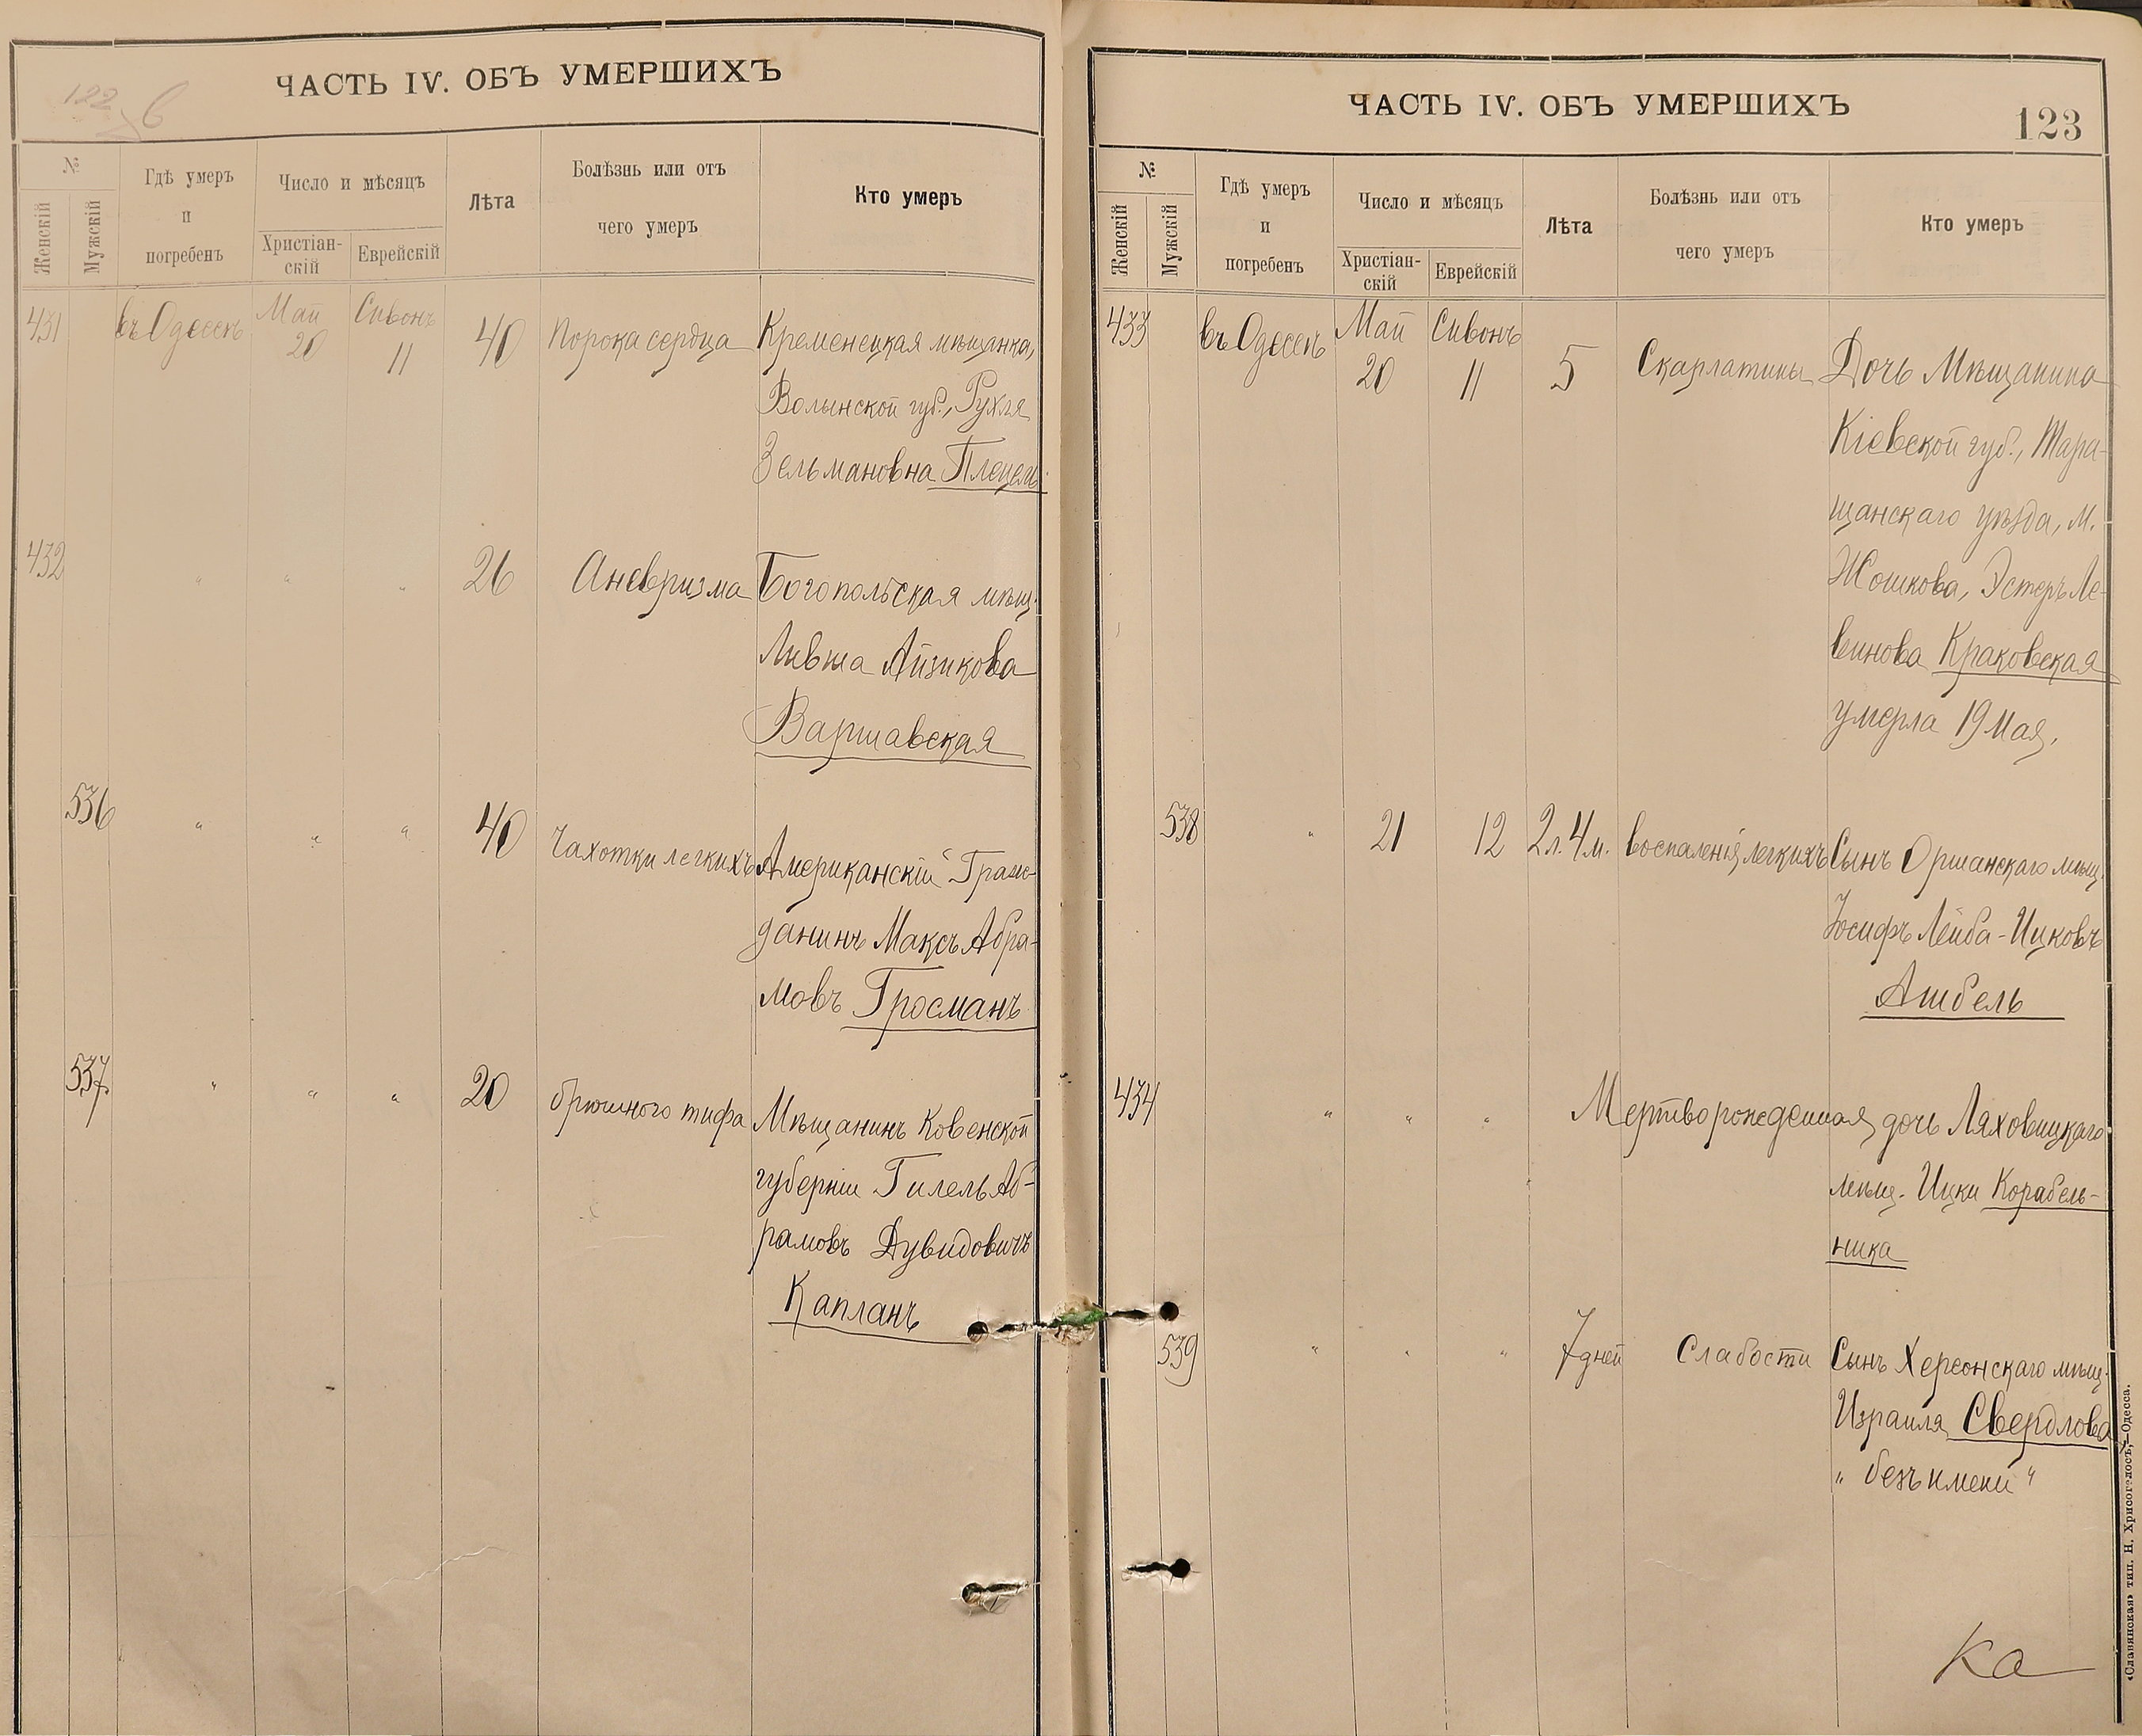 ЧАСТЬ IV. ОБЪ УМЕРШИХЪ
122
№
Женскій
Мужскій
Гдѣ умеръ
и
погребенъ
Число и мѣсяцъ
Христіан-
скій
Еврейскій
Лѣта
Болѣзнь или отъ
чего умеръ
Кто умеръ
431 въ Одессѣ Май 20 Сивонъ 11 40 Порока сердца Кременецкая мѣщанка,
Волынской губ., Рухля
Зельмановна Плецель
432 " " " 26 Аневризма Богопольская мѣщ.
Ливша Айзикова
Варшавская
536 " " " 40 Чахотки легкихъ Американскій Граж-
данинъ Максъ Абра-
мовъ Гросманъ
537 " " " 20 брюшного тифа Мѣщанинъ Ковенской
губерніи Гилель Аб-
рамовъ Дувидовичъ
Капланъ
ЧАСТЬ IV. ОБЪ УМЕРШИХЪ
123
№
Женскій
Мужскій
Гдѣ умеръ
и
погребенъ
Число и мѣсяцъ
Христіан-
скій
Еврейскій
Лѣта
Болѣзнь или отъ
чего умеръ
Кто умеръ
433 въ Одессѣ Май 20 Сивонъ 11 5 Скарлатины Дочь Мѣщанина
Кіевской губ., Тара-
щанскаго уѣзда, м.
Жошкова, Эстеръ Ле-
винова Краковская
умерла 19 Мая.
538 " 21 12 2 л. 4 м. воспаленія легкихъ Сынъ Оршанскаго мѣщ.
Іосифъ Лейба-Ицковъ
Ашбель
434 " " " Мертворожденная дочь Ляховицкаго
мѣщ. Ицки Корабель-
ника
539 " " " 7 дней Слабости Сынъ Херсонскаго мѣщ.
Израиля Свердлова
"безъ имени"
Ка
«Славянская» тип. Н. Хрисогелосъ,—Одесса.